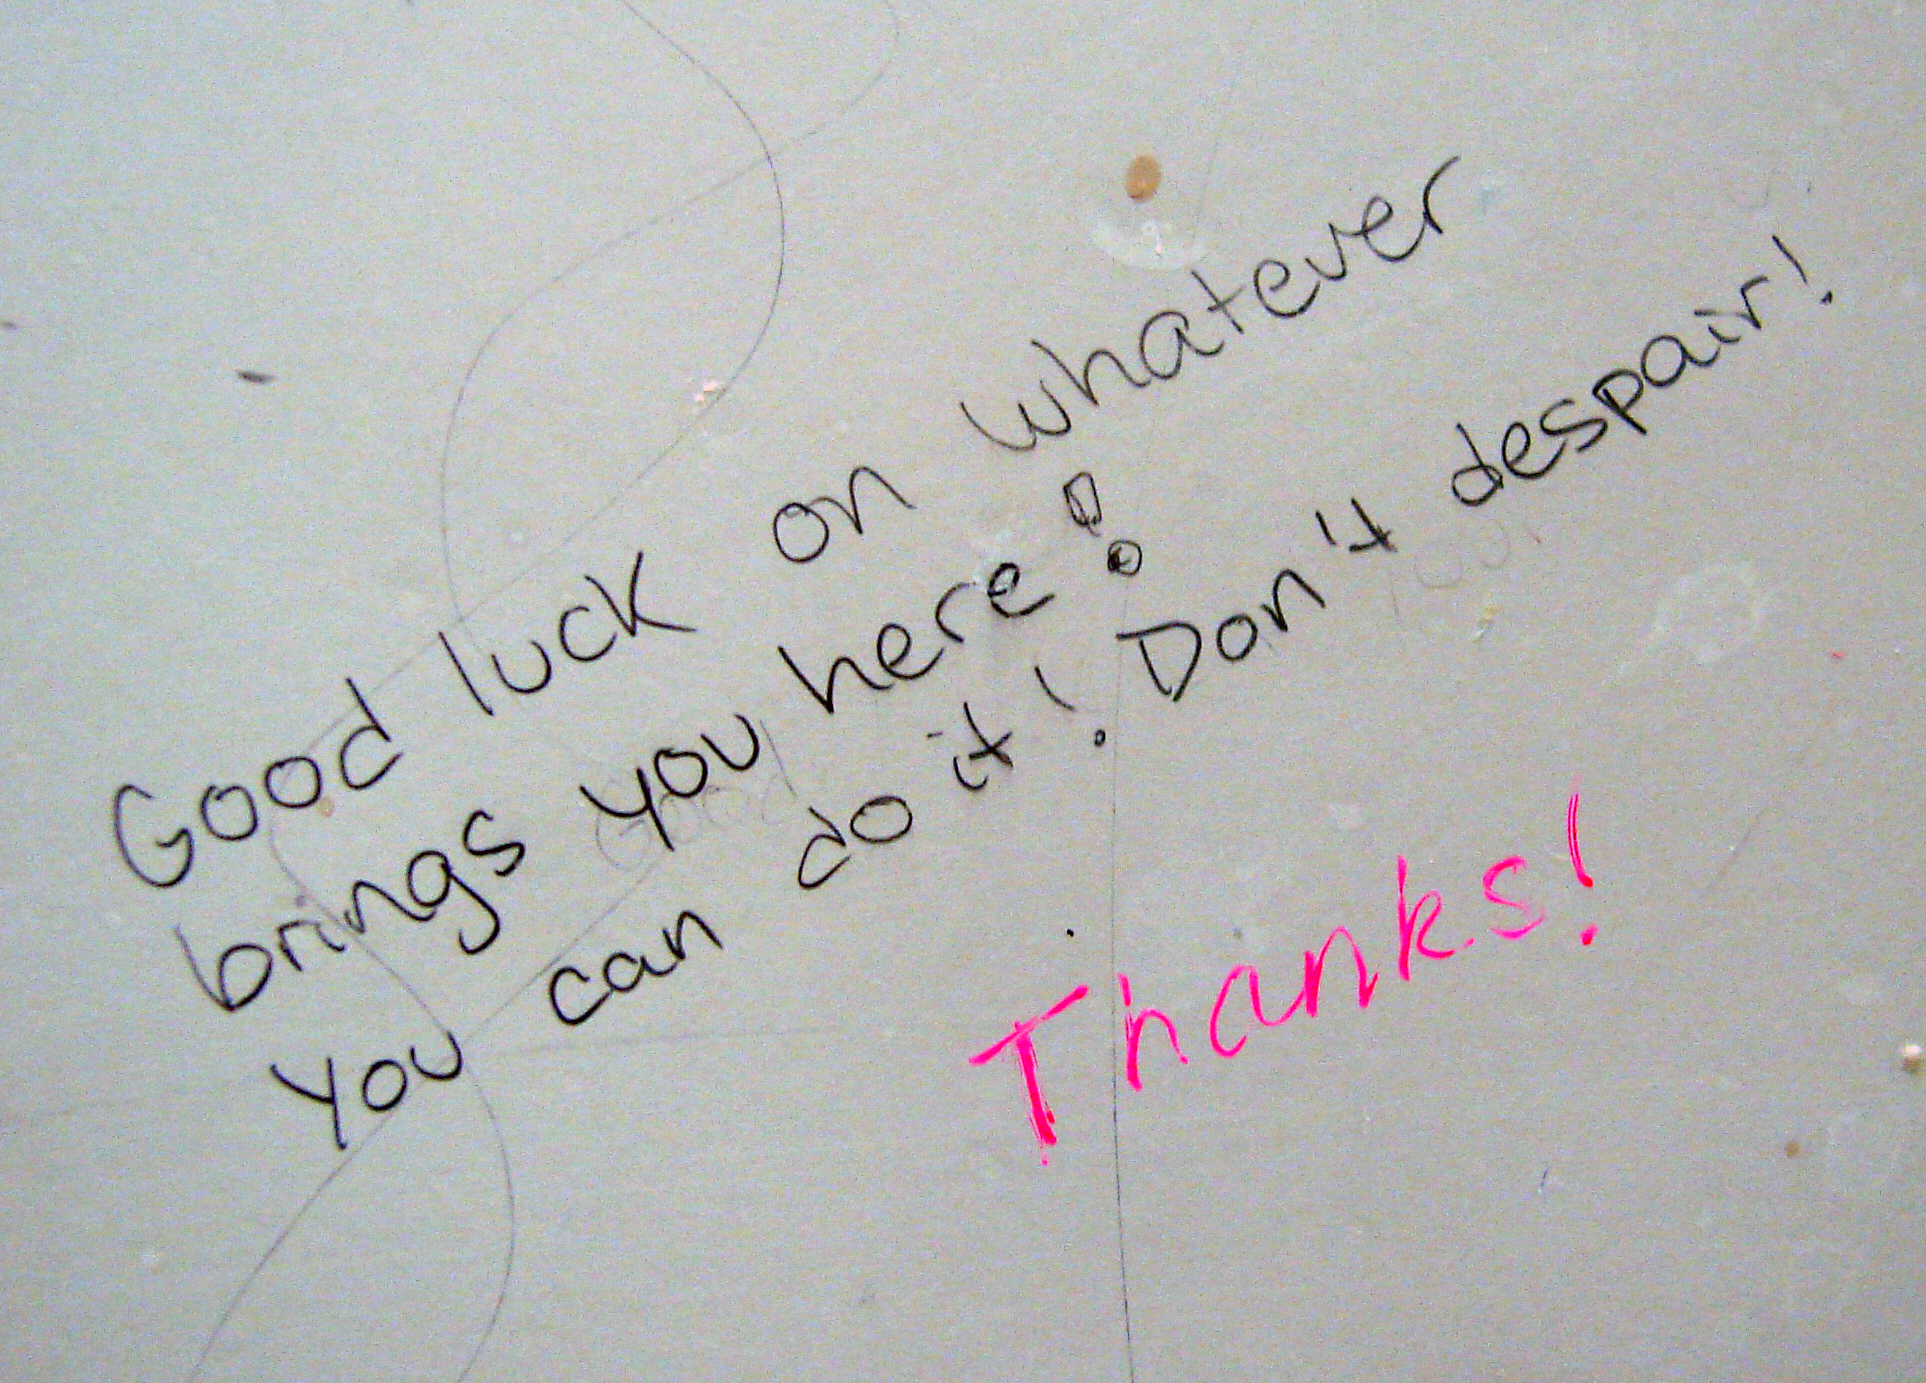 Good luck on whatever
brings you here!
You can do it! Don't despair!
Thanks!